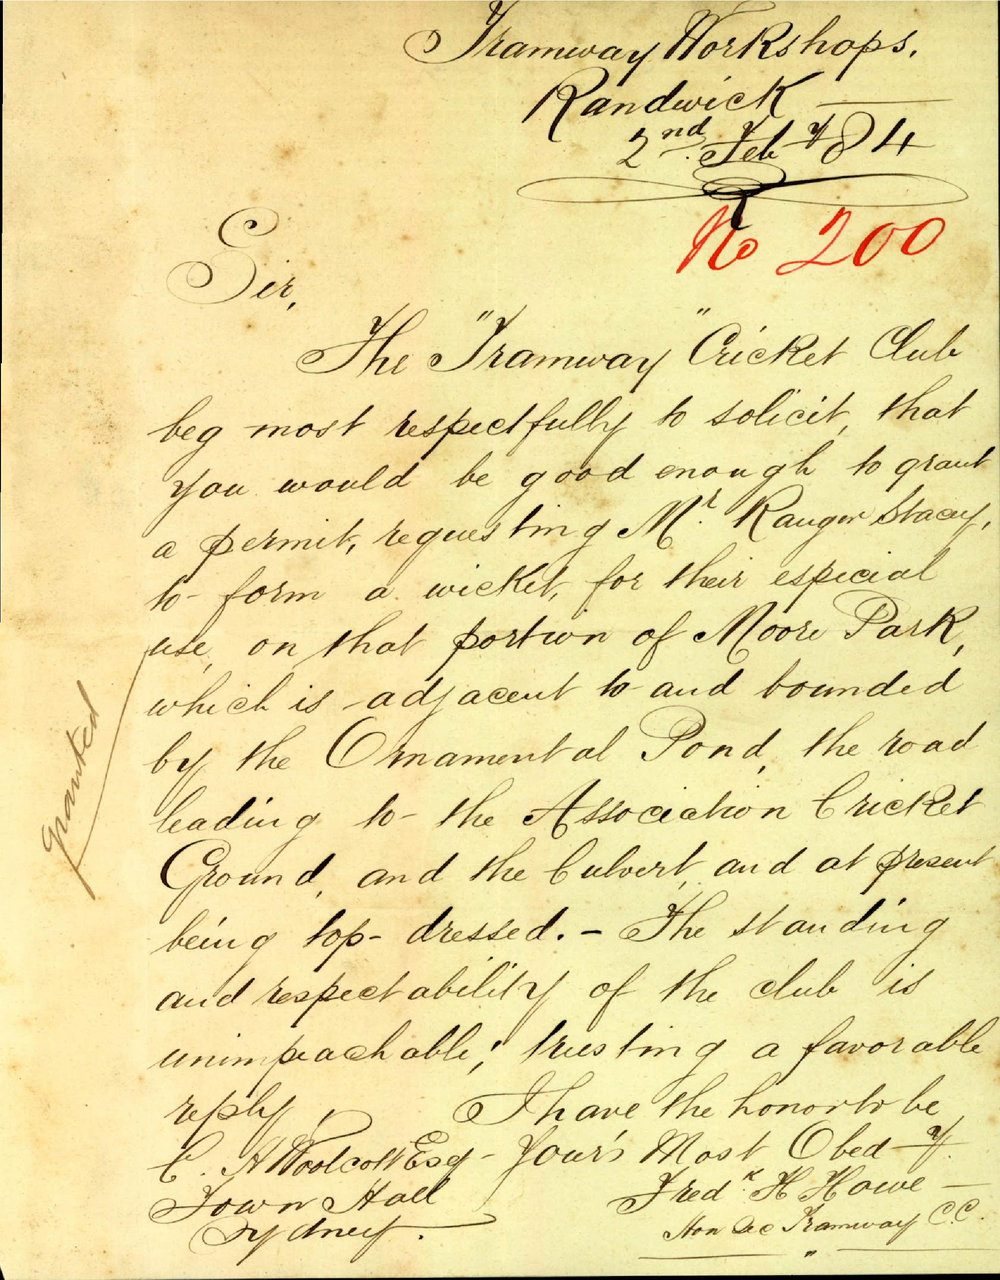 Tramway Workshops.
Randwick
2nd Feby 84
No 200
Sir,
The "Tramway" Cricket Club
beg most respectfully to solicit, that
you would be good enough to grant
a permit, requesting Mr. Ranger Stacey,
to form a wicket, for their especial
use, on that portion of Moore Park,
which is adjacent to and bounded
by the Ornamental Pond, the road
leading to the Association Cricket
Ground, and the Culvert, and at present
being top-dressed. - The standing
and respectability of the club is
unimpeachable; trusting a favorable
reply,
I have the honor to be
Your's Most Obedy.
Fredk H Howe
Hon Sec Tramway C.C.
C. H Woolcott Esq -
Town Hall
Sydney.
granted